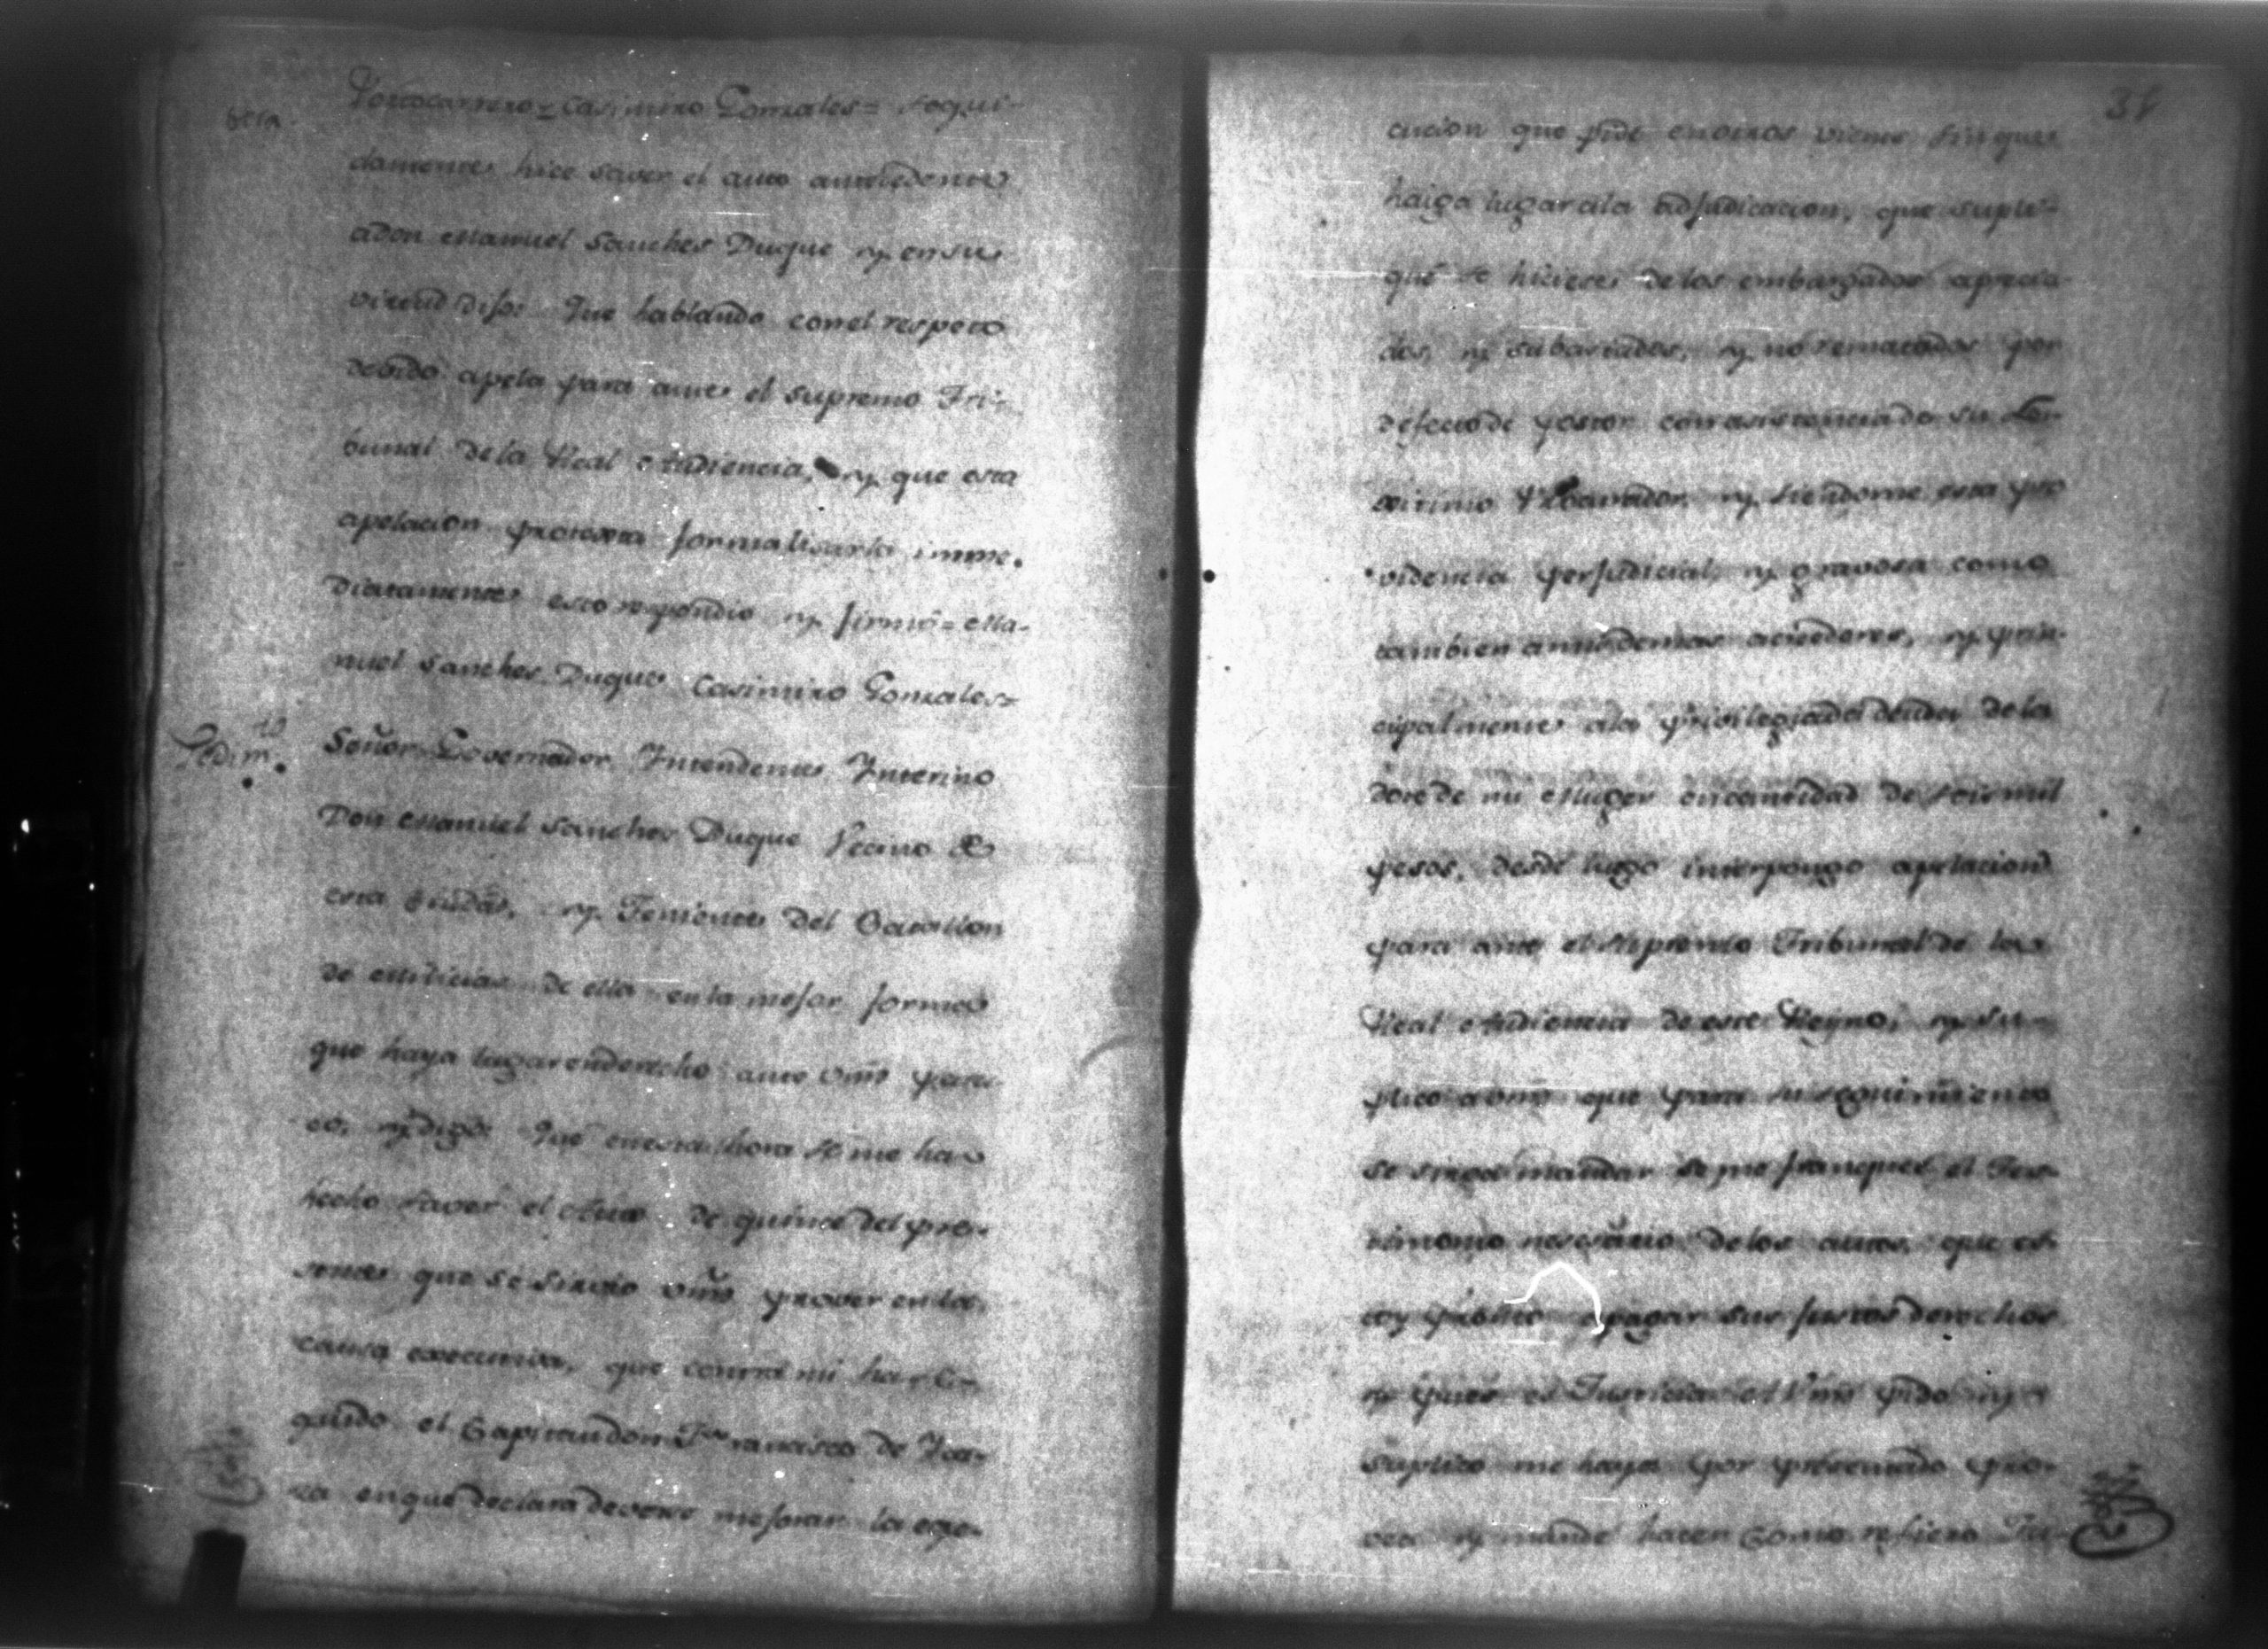 otra
Portocarrero = Casimiro Gonzales = Segui-
damente hice saver el auto antecedente
adon Manuel Sanches Duque y en su
virtud dijo: Que hablando con el respeto
devido apela para ante el supremo Tri-
bunal de la Real Audiencia, y que esta
apelacion protexta formalisarla imme-
diatamente esto respondio y firmó = Ma-
nuel Sanches Duque Casimiro Gonzales =
Pedimto
Señor Governador Yntendente Ynterino
Don Manuel Sanches Duque Vecino de
esta Ciudad, y Teniente del Batallon
de Milicias de ella en la mejor forma
que haya lugar en derecho ante Vmd pares-
co, y digo: Que en esta hora se me ha
hecho saver el Auto de quince del pre-
sente que se sirvio Vmd prover en la
causa executiva, que contra mi ha se-
guido el Capitan don Francisco de
en que declara deverse mejorar la exe-
31
cucion que pide en otros vienes sin que
haiga lugar ala adjudicacion, que supli-
qué se hiciese de los embargados aprecia-
dos, y subastados, y no rematados por
defecto de postor con asistencia de su
Procurador, y siendome esta pro
videncia perjudicial, y gravosa como
tambien a mis demas acredores, y prin-
cipalmente ala privilegiada deuda de la
dote de mi Muger en cantidad de seis mil
pesos, desde luego interpongo apelacion
para ante el supremo Tribunal de la
Real Audiencia de este Reyno, y su-
plico a Vmd que para su seguimiento
se sirva mandar se me franquee el Tes-
timonio nesesario de los autos, que es-
toy pronto a pagar sus justos derechos
y pues es Justicia A Vmd pido y
suplico me haya por presentado pro-
vea y mande hacer como refiero Ju-